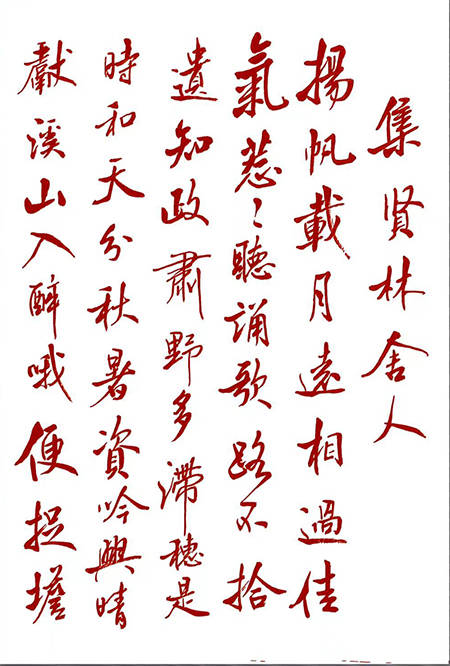 集贤林舍人
揚帆載月遠相過佳
氣葱〻聽誦歌路不拾
遺知政肅野多滯穗是
時和天分秋暑資吟興晴
獻溪山入醉哦便捉蟾